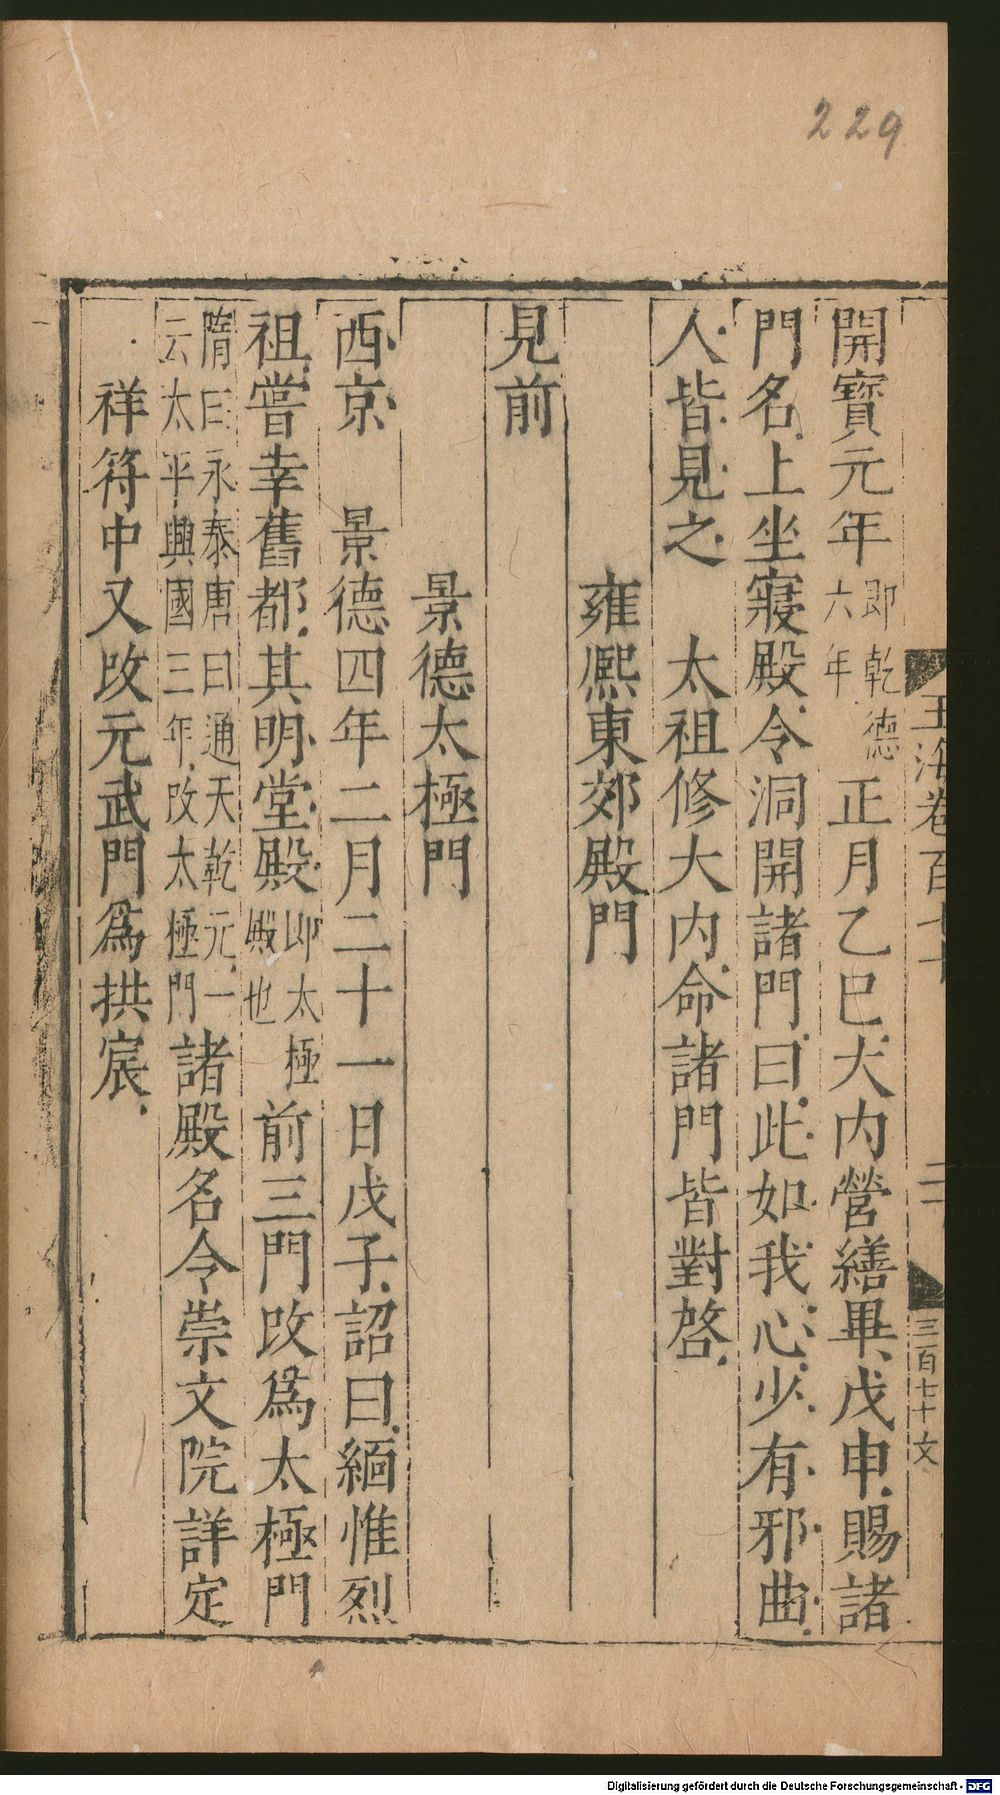 229
玉海卷百七十
二十
三百七十文
開寶元年即乾德六年正月乙巳大内營繕畢戊申賜諸
門名上坐寢殿令洞開諸門曰此如我心少有邪曲
人皆見之　太祖修大内命諸門皆對啓
雍熙東郊殿門
見前
景德太極門
西京　景德四年二月二十一日戊子詔曰緬惟烈
祖嘗幸舊都其明堂殿即太極殿也前三門改爲太極門
隋曰永泰唐曰通天乾元一云太平興國三年改太極門諸殿名令崇文院詳定
祥符中又改元武門爲拱宸
Digitalisierung gefördert durch die Deutsche Forschungsgemeinschaft - DFG